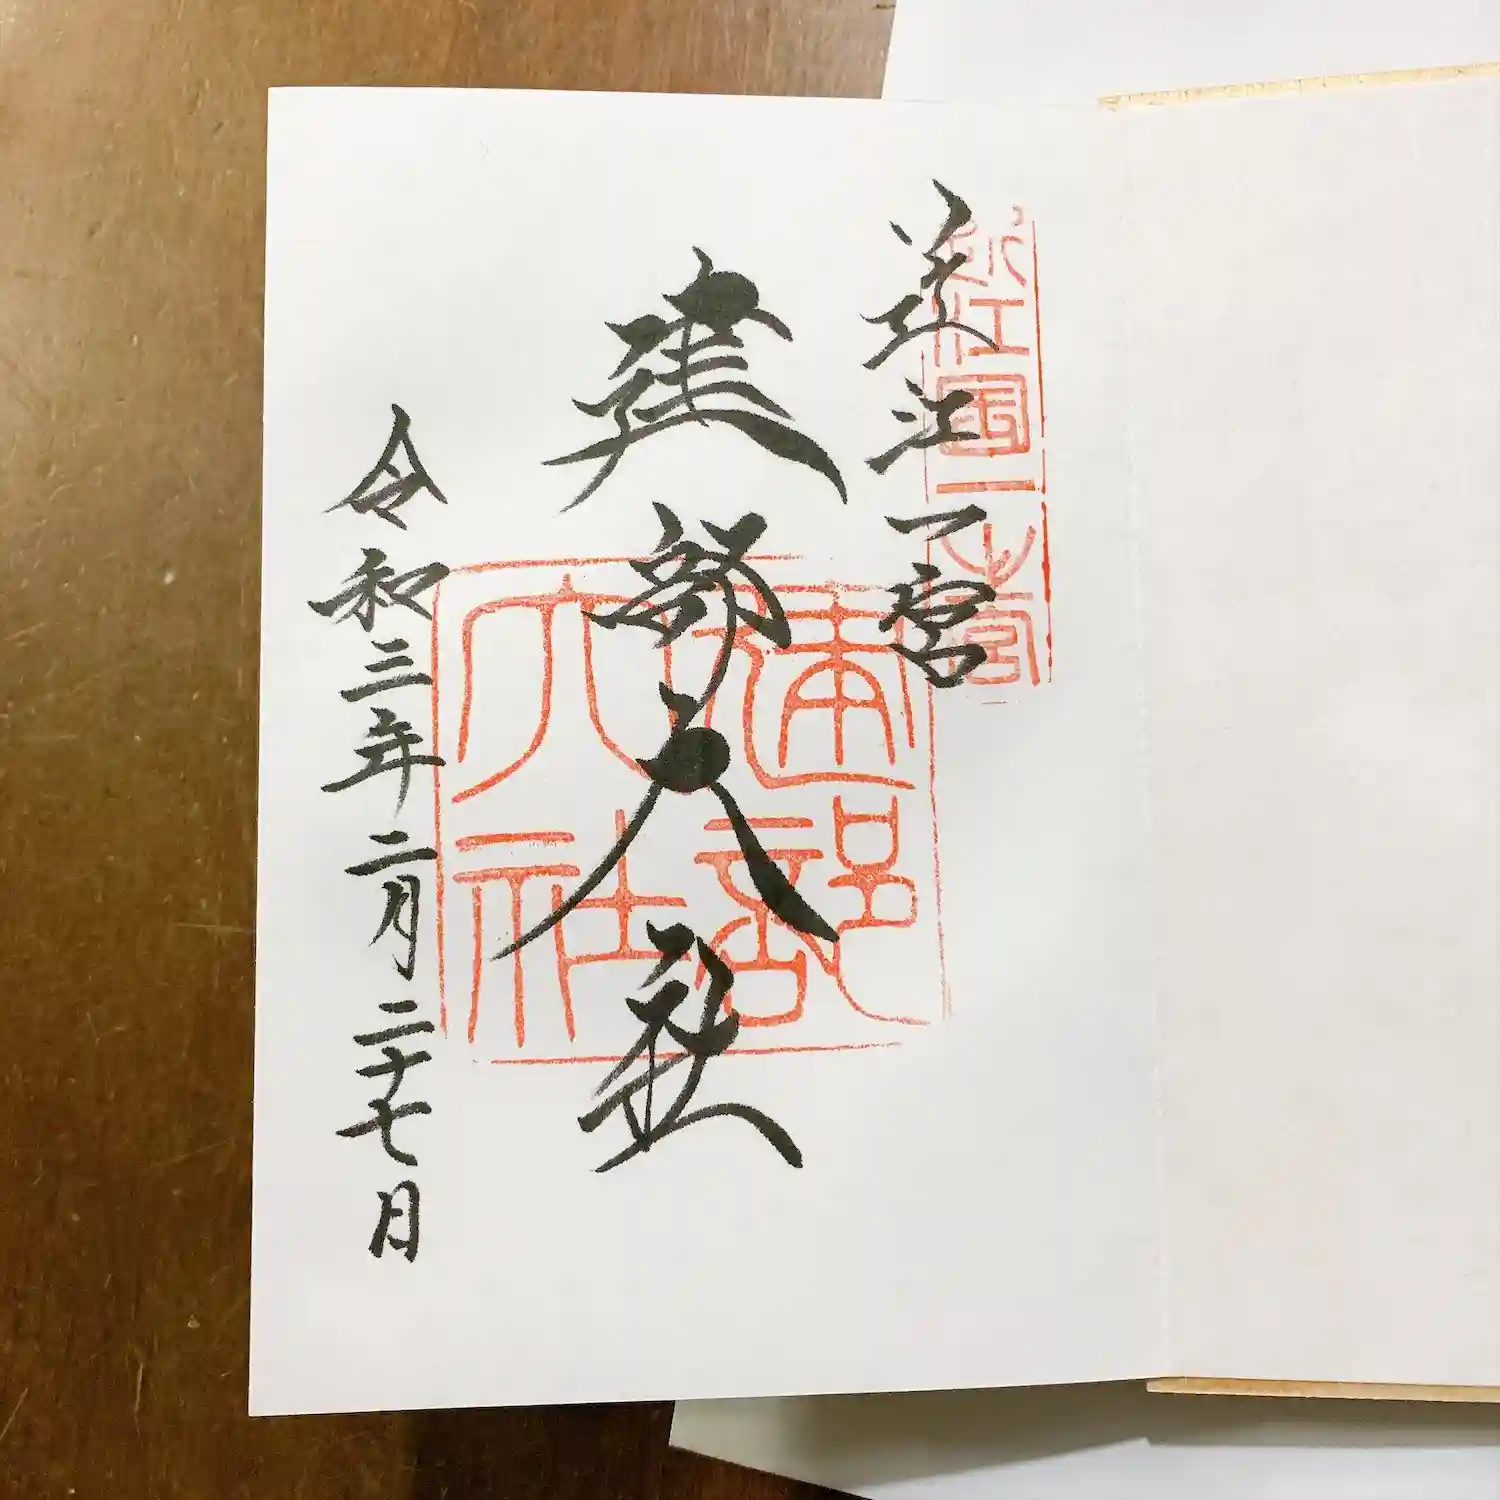 近江一宮
近江国一之宮
建部大社
建部
大社
令和三年二月二十七日